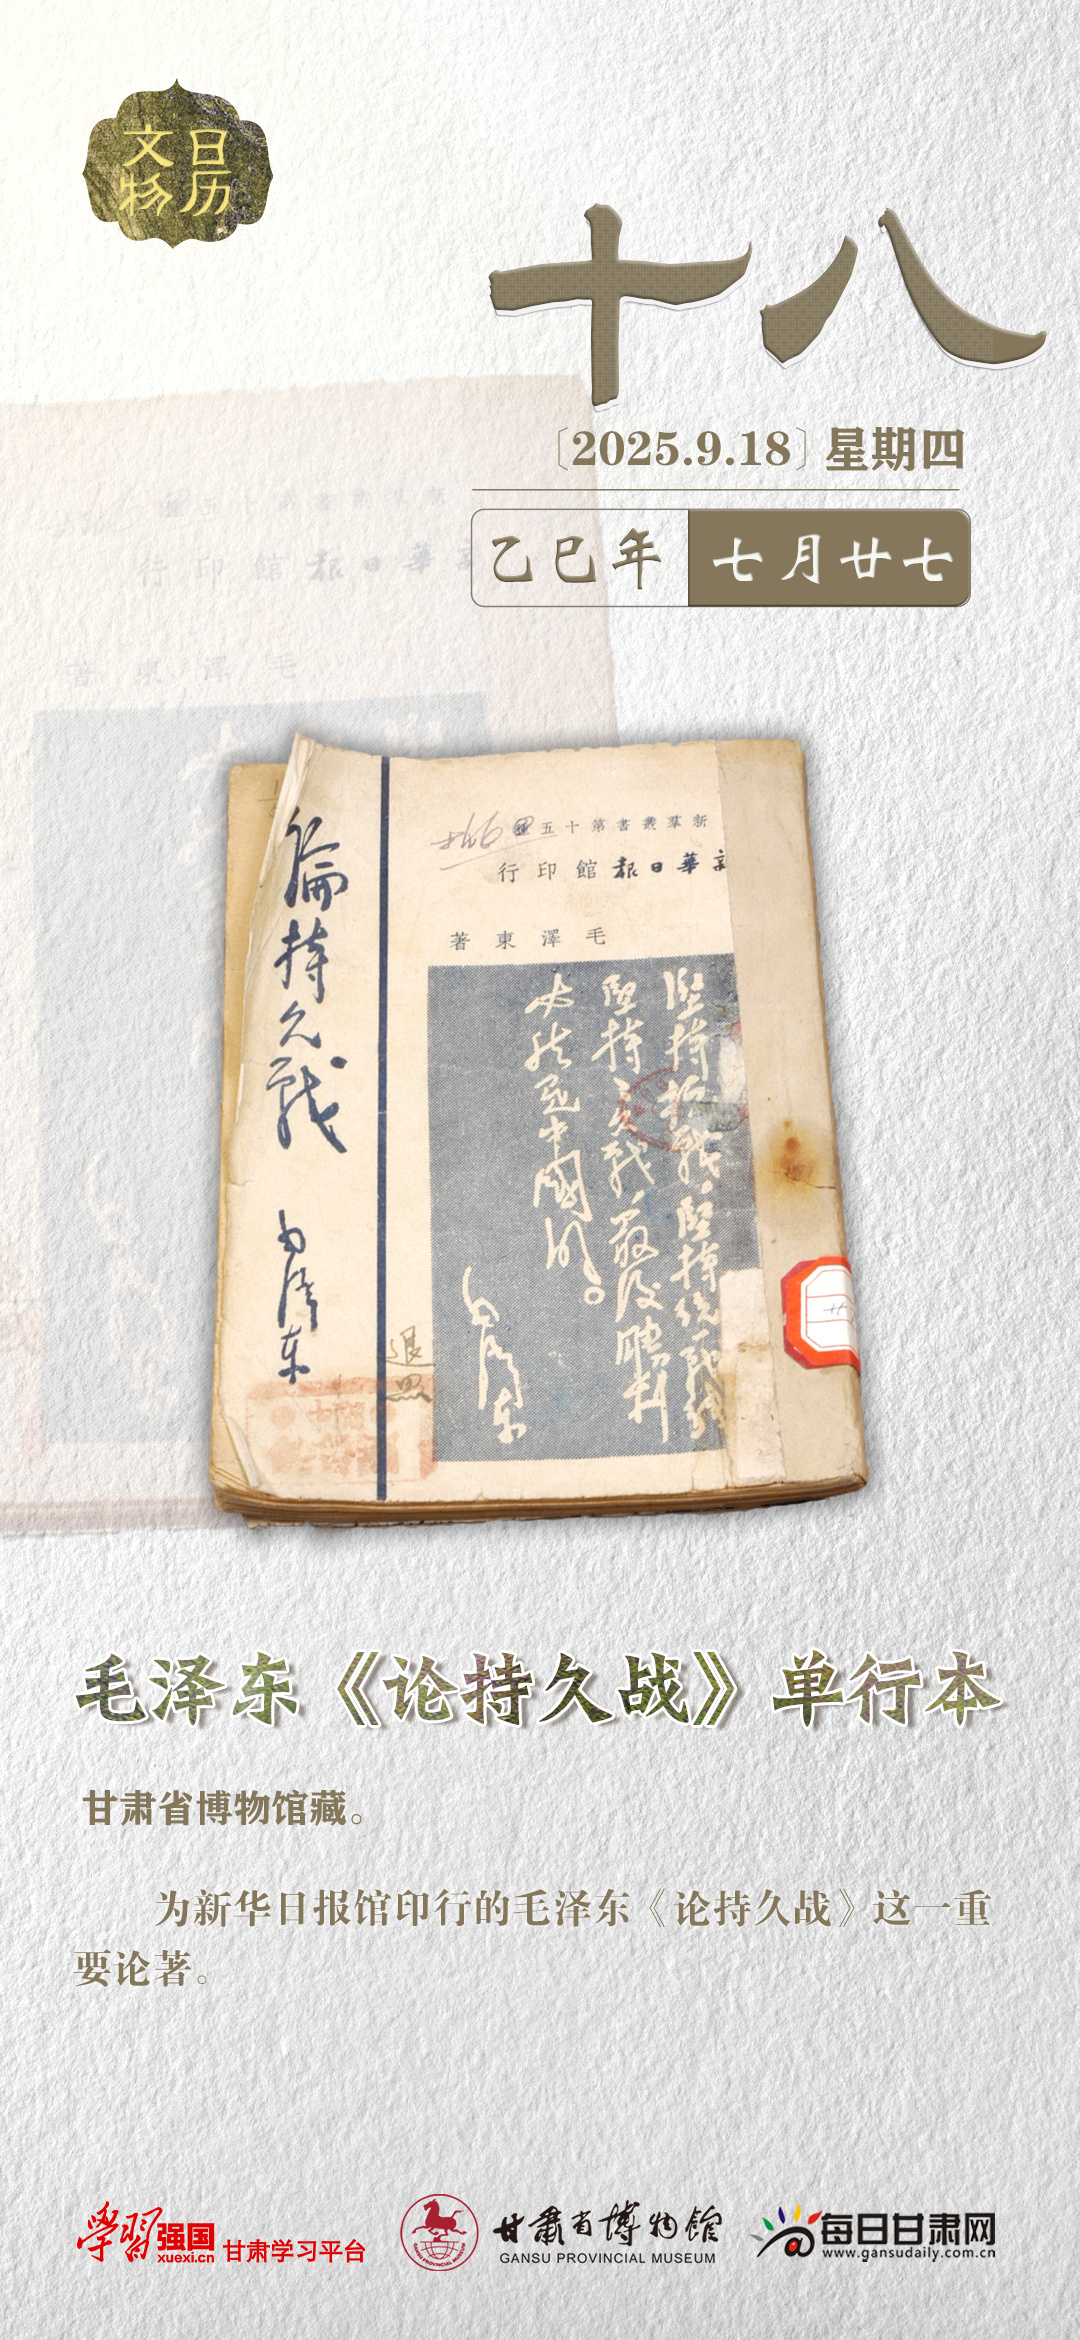 文物
日历
十八
〔2025.9.18〕星期四
乙巳年 七月廿七
新羣叢書第十五種
新華日報館印行
毛澤東著
論持久戰
毛澤東
堅持抗戰，堅持統一戰線
堅持持久戰，最後勝利
必然是中國的。
毛澤東
退思
毛泽东《论持久战》单行本
甘肃省博物馆藏。
为新华日报馆印行的毛泽东《论持久战》这一重
要论著。
学习强国
xuexi.cn
甘肃学习平台
甘肃省博物馆
GANSU PROVINCIAL MUSEUM
每日甘肃网
www.gansudaily.com.cn